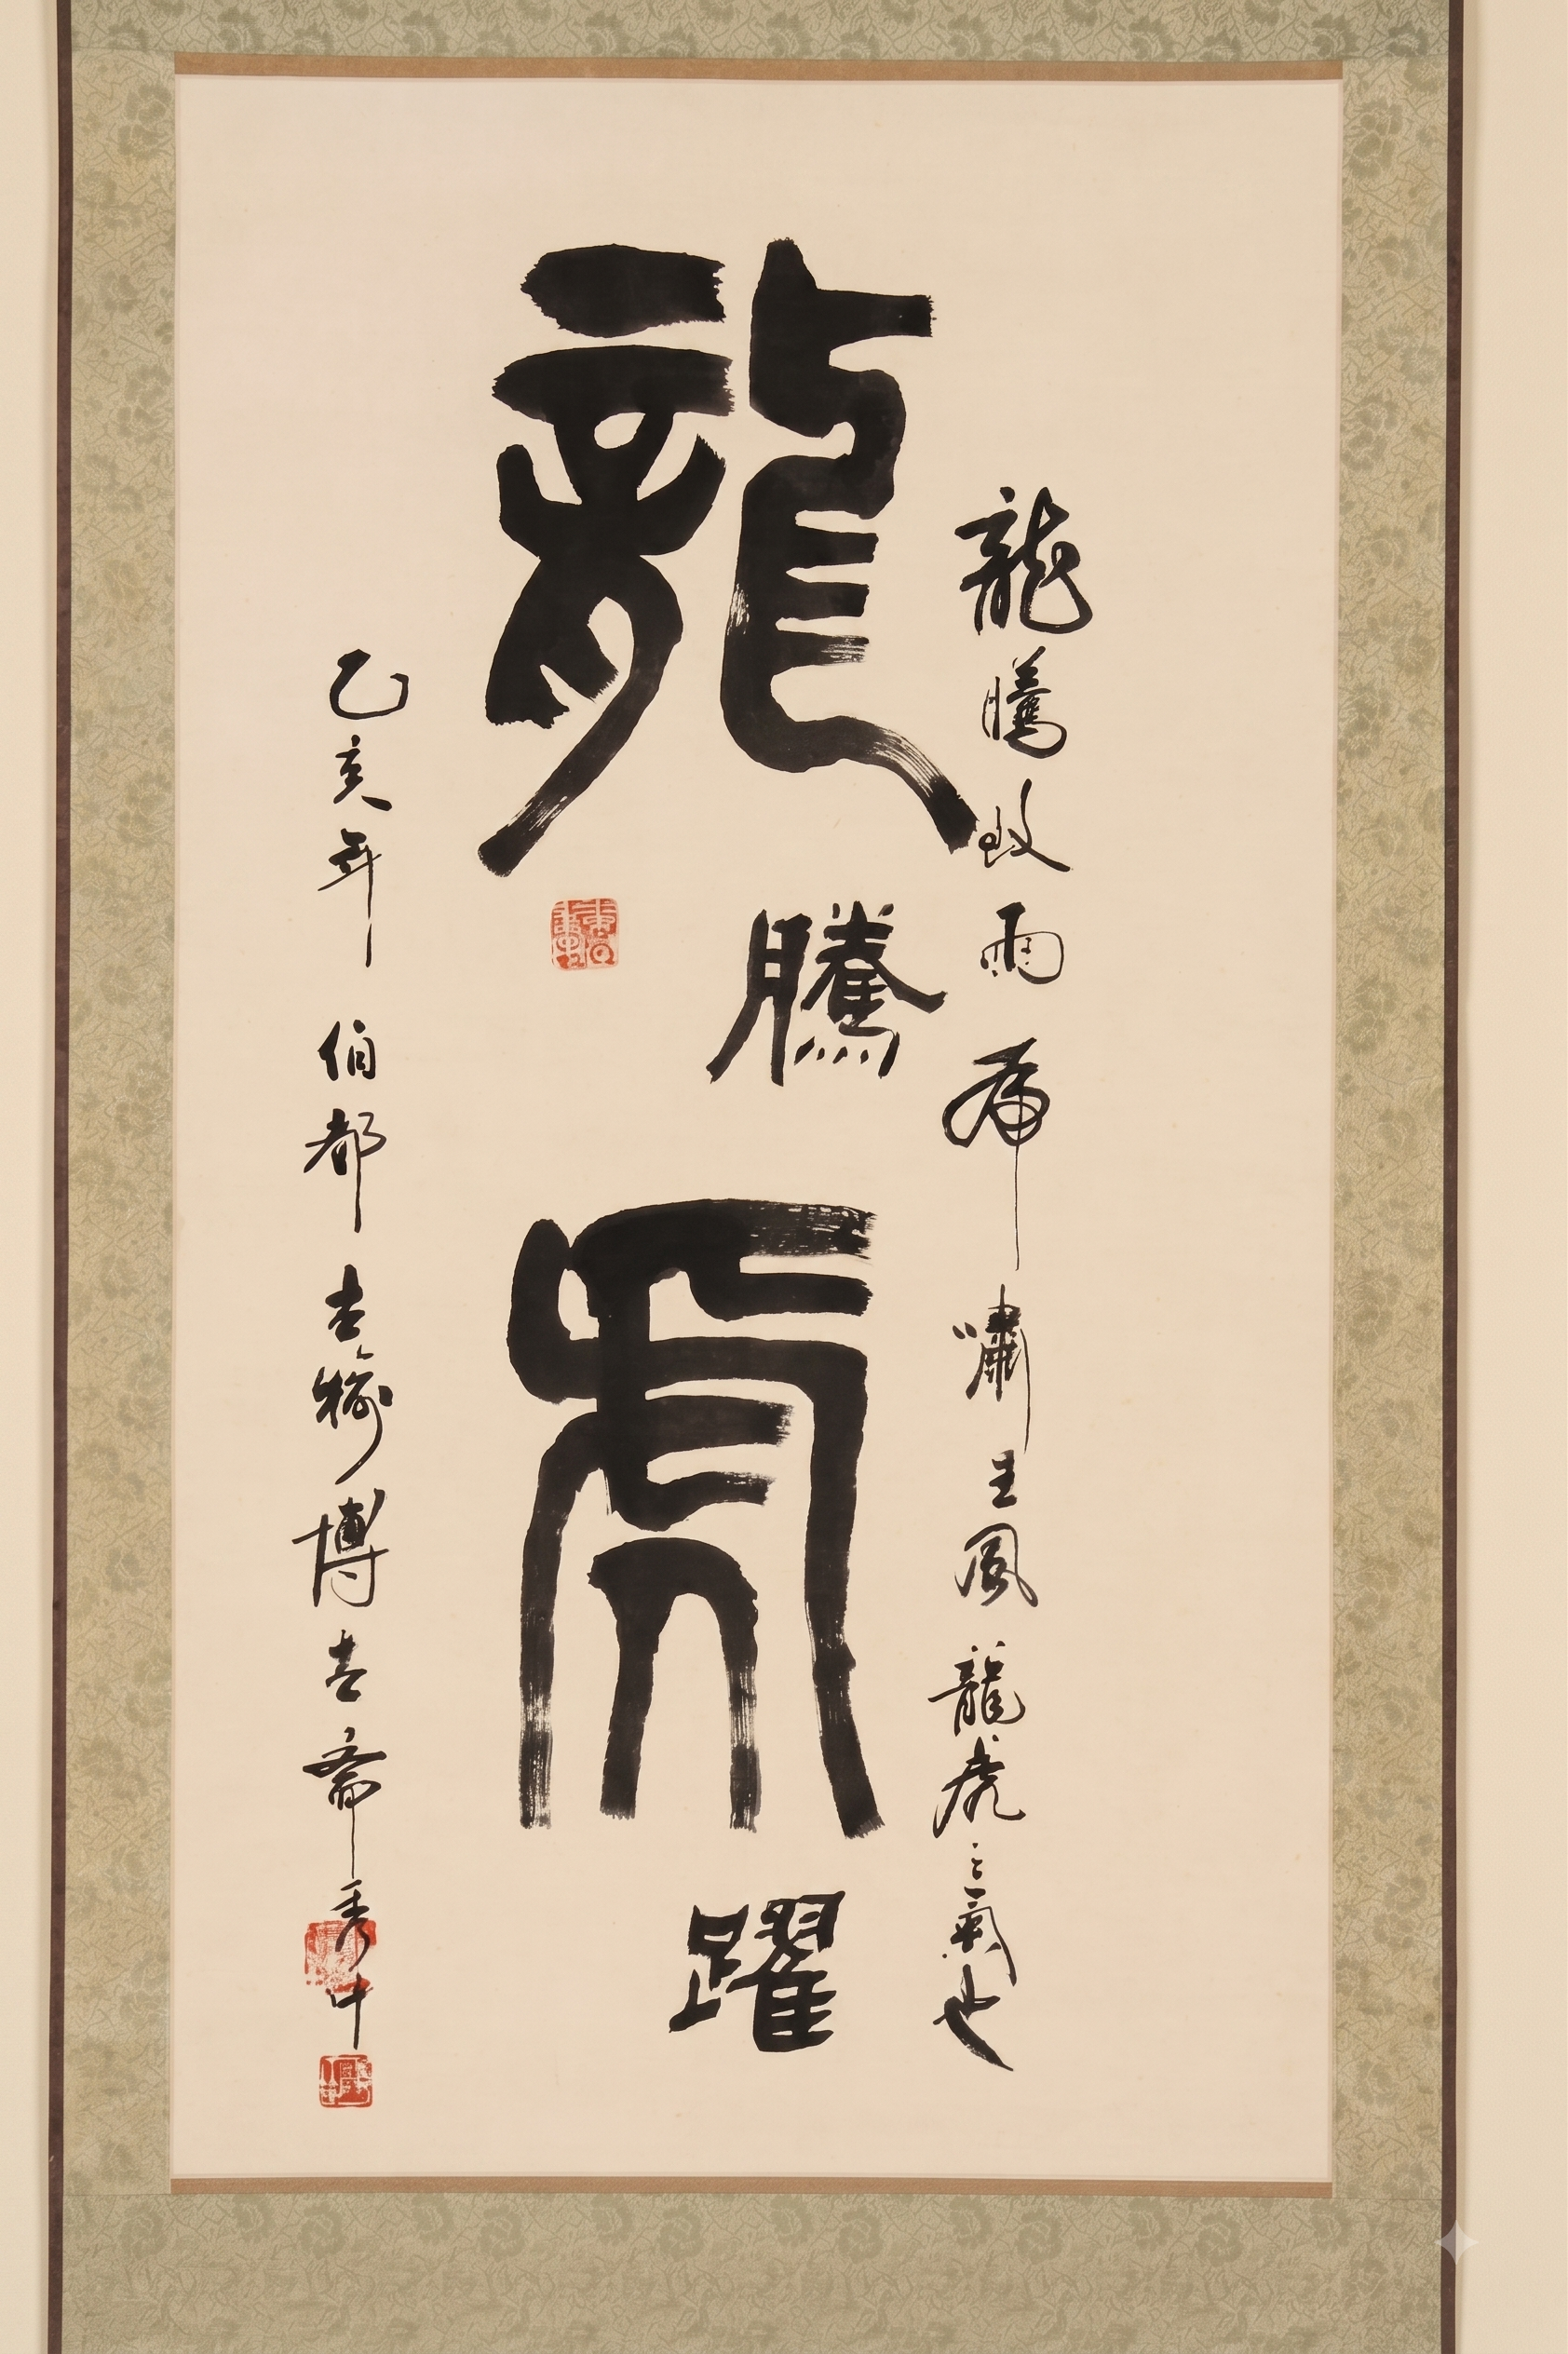 龍騰致雨虎嘯生風龍虎之氣也
龍騰虎躍
乙亥年伯都古榆博古齋秀中